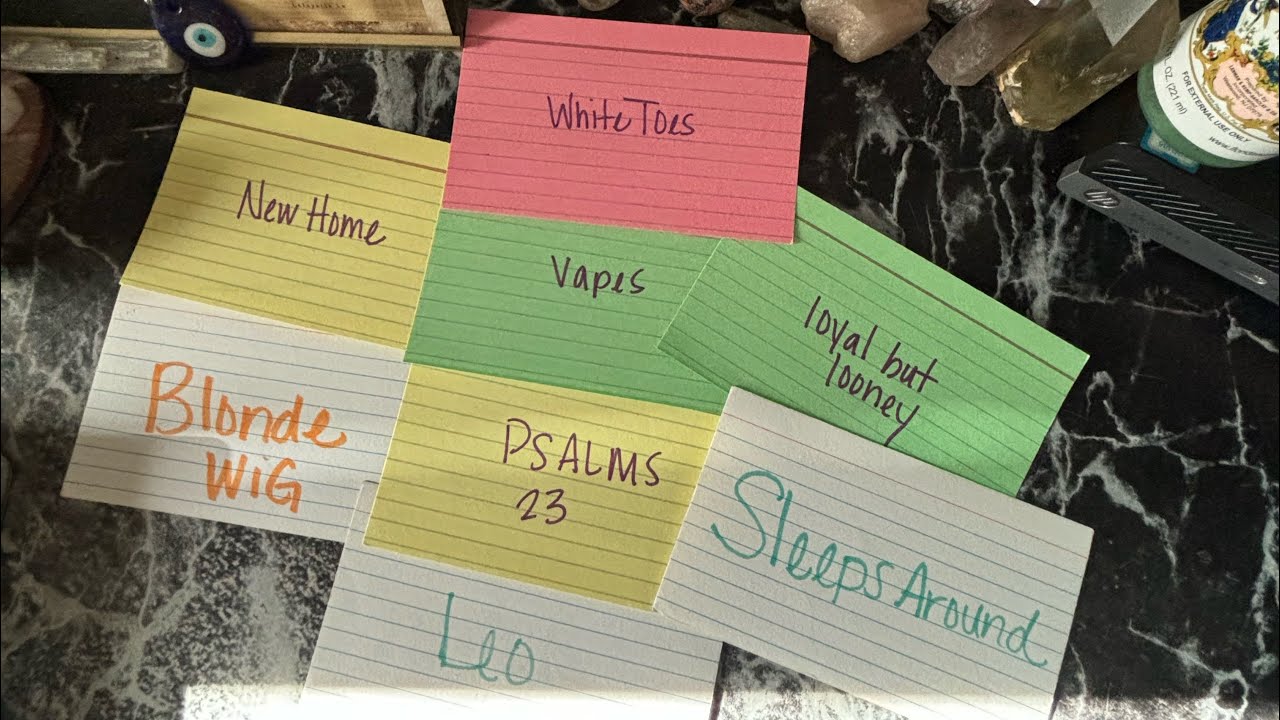 White Toes
New Home
Vapes
loyal but
looney
Blonde
WiG
PSALMS
23
Sleeps Around
Leo
OZ (221 ml)
FOR EXTERNAL
USE ONLY
hp